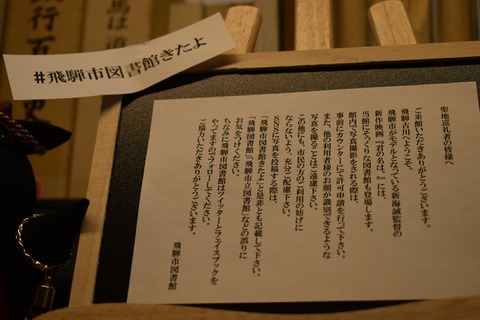 #飛騨市図書館きたよ
聖地巡礼者の皆様へ
ご来館いただきありがとうございます。
飛騨古川へようこそ。
飛騨市がモデルとなっている新海誠監督の
新作映画『君の名は。』には、
当館にそっくりな図書館も登場します。
館内で写真撮影をされる際は、
事前にカウンターにて許可申請を行って下さい。
また、他の利用者様のお顔が識別できるような
写真を撮ることはご遠慮下さい。
この他にも、市民の方のご利用の妨げに
ならないよう、充分ご配慮下さい。
SNSに写真を投稿する際は、
「飛騨市図書館きたよ」と是非とも記載して下さい。
「飛騨図書館」「飛騨市立図書館」などの誤りに
お気をつけください。
ちなみに飛騨市図書館はツイッターとフェイスブックを
やってますのでフォローしてください。
ご協力いただきありがとうございます。
飛騨市図書館